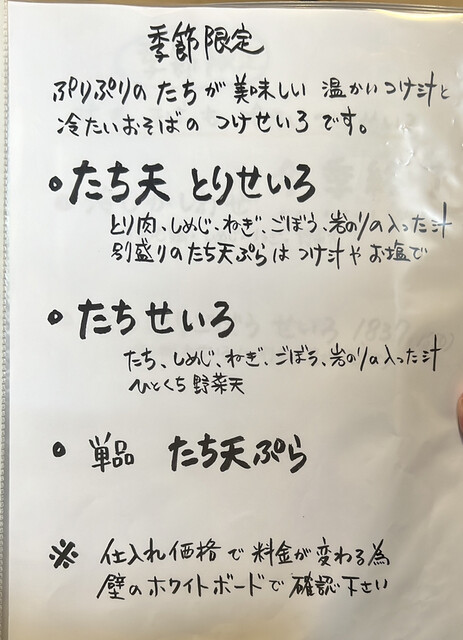 季節限定
ぷりぷりの たちが 美味しい 温かいつけ汁と
冷たいおそばの つけせいろ です。
○たち天 とりせいろ
とり肉、しめじ、ねぎ、ごぼう、岩のりの入った汁
別盛りのたち天ぷらは つけ汁や お塩で
○たちせいろ
たち、しめじ、ねぎ、ごぼう、岩のりの入った汁
ひとくち 野菜天
○ 単品 たち天ぷら
※ 仕入れ価格で 料金が変わる為
壁のホワイトボードで 確認下さい